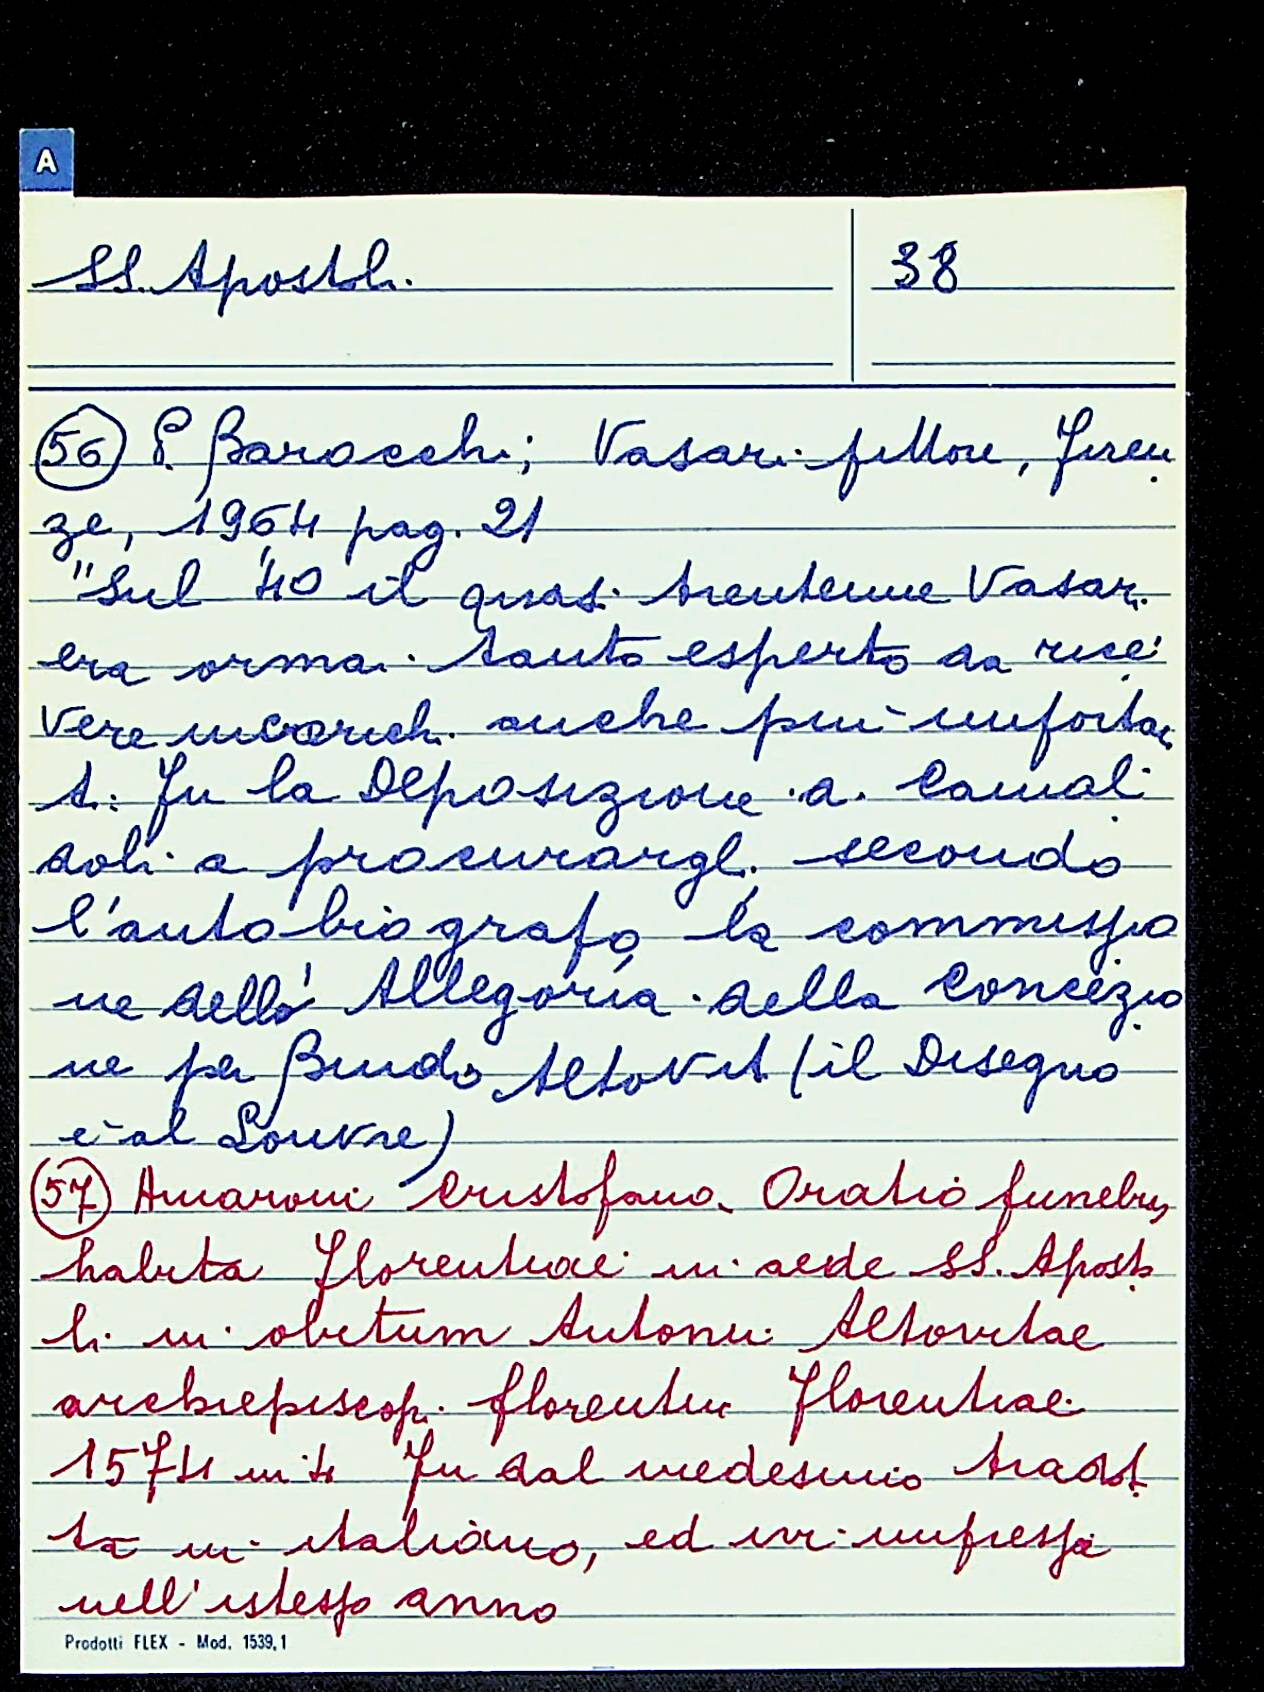 A
SS. Apostoli
38
56 P. Barocchi; Vasari pittore, Firen
ze, 1964 pag. 21
"Sul '40 il quasi trentenne Vasari
era ormai tanto esperto da rice
vere incarichi anche più importan
ti: fu la Deposizione di Camal
doli a procurargli secondo
l'autobiografo la commissio
ne della Allegoria della Concezio
ne per Bindo Altoviti (il Disegno
è al Louvre)
57 Amaroni Cristofano. Oratio funebris
habita Florentiae in aede SS. Aposto
li in obitum Antonii Altovitae
archiepiscopi florentin Florentiae
1574 in 4 Fu dal medesimo tradot
ta in italiano, ed ivi impressa
nell'istesso anno
Prodotti FLEX - Mod. 1539,1